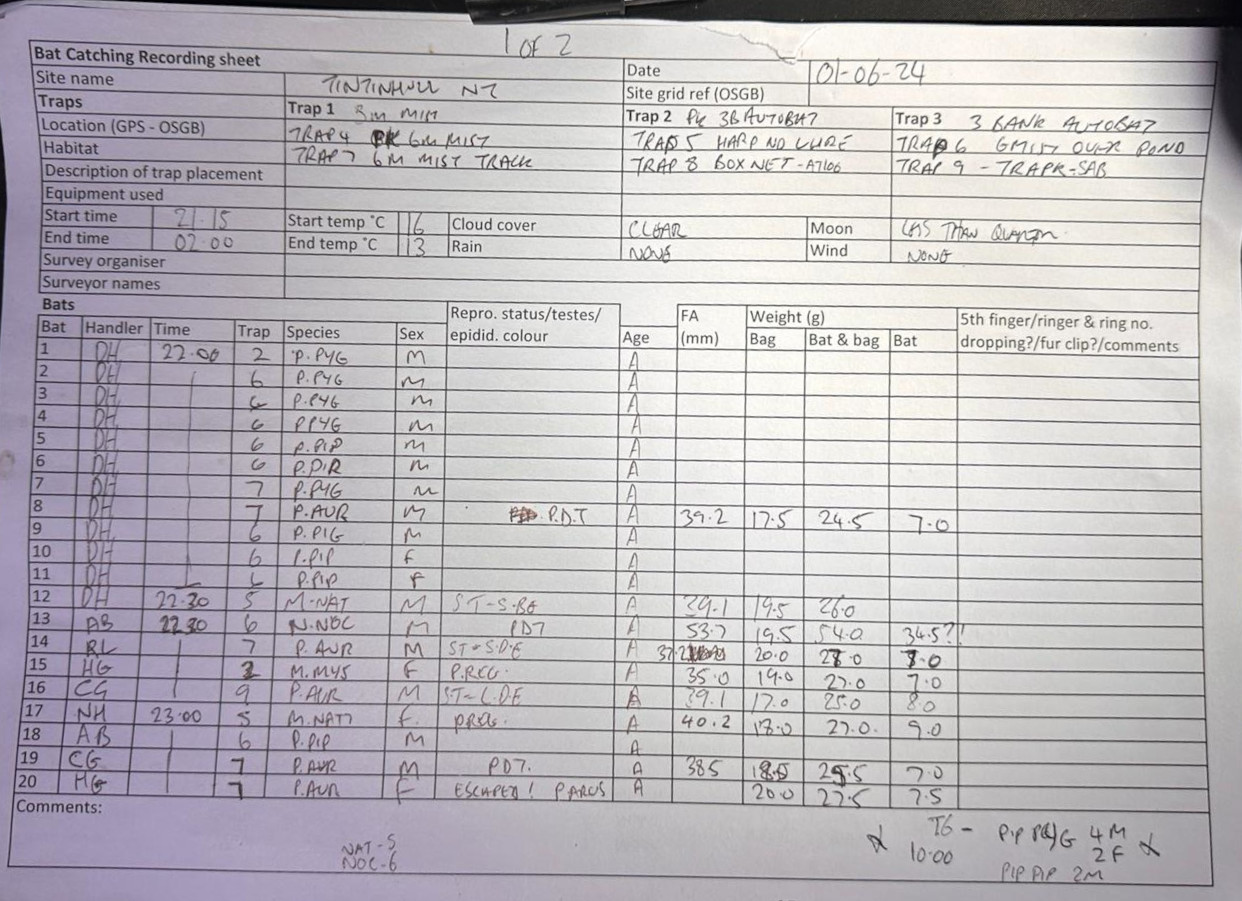 1 OF 2
Bat Catching Recording sheet
Date 01-06-24
Site name TINTINHULL NT
Site grid ref (OSGB)
Traps Trap 1 3m MIST Trap 2 3B AUTOBAT Trap 3 3 BANK AUTOBAT
Location (GPS - OSGB) TRAP 4 6m MIST TRAP 5 HARP NO LURE TRAP 6 6MIST OVER POND
Habitat TRAP 7 6M MIST TRACK TRAP 8 BOX NET -A7106 TRAP 9 -
Description of trap placement
Equipment used
Start time 21.15 Start temp °C 16 Cloud cover CLEAR Moon LESS THAN QUARTER
End time 02.00 End temp °C 13 Rain NONE Wind NONE
Survey organiser
Surveyor names
Bats
Bat Handler Time Trap Species Sex Repro. status/testes/ epidid. colour Age FA (mm) Weight (g) Bag Bat & bag Bat 5th finger/ringer & ring no. dropping?/fur clip?/comments
1 DH 22.00 2 P.PYG M A
2 DH 6 P.PYG M A
3 DH 6 P.PYG M A
4 DH 6 PPYG M A
5 DH 6 P.PIP M A
6 DH 6 P.PIP M A
7 DH 7 P.PYG M A
8 DH 7 P.AUR M P.D.T A 39.2 17.5 24.5 7.0
9 DH 6 P.PIG M A
10 DH 6 P.PIP F A
11 DH 6 P.PIP F A
12 DH 22.30 5 M.NAT M ST-S-BE A 39.1 19.5 26.0
13 AB 22.30 6 N.NOC M PDT A 53.7 19.5 54.0 34.5?!
14 RL 7 P.AUR M ST-S.DE A 37.2 20.0 28.0 8.0
15 HG M.MYS F PREG. A 35.0 19.0 27.0 7.0
16 CG 9 P.AUR M ST-L.DE A 39.1 17.0 25.0 8.0
17 NH 23.00 5 M.NATT F. PREG. A 40.2 18.0 27.0. 9.0
18 AB 6 P.PIP M A
19 CG 7 P.AUR M PDT. A 385 18.5 25.5 7.0
20 HG 7 P.AUR F ESCAPED! PAROUS A 20.0 27.5 7.5
Comments:
NAT-5
NOC-6
T6 - PIP PYG 4M
10.00 2F
PIP PIP 2M